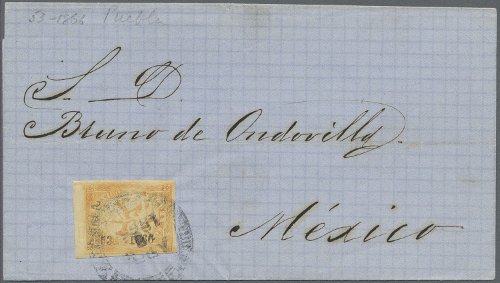 53-1866 Puebla
S. D.
Bruno de Ondovilly.
México